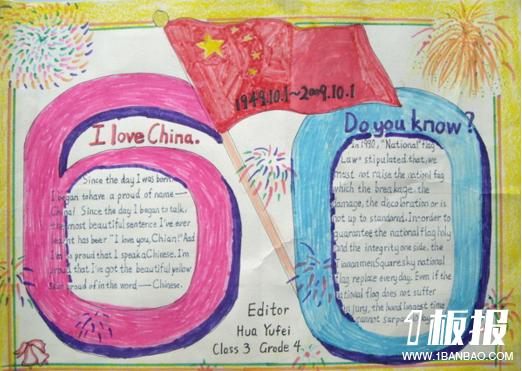 1949.10.1~2009.10.1
I love China.
Since the day I was born,
I began to have a proud of name—
China! Since the day I began to talk,
the most beautiful sentence I've ever
learnt has beer "I love you, Chian!" And
I'm so proud that I speak Chinese. I'm
proud that I've got the beautiful yellow
proud of in the word — Chinese.
Do you know?
In 1990, "National flag
Law" stipulated that, we
must not raise the national flag
which the breakage, the
damage, the discoloration or is
not up to standard. In order to
guarantee the national flag holy
and the integrity one side, the
Tiananmen Square sky national
flag replace every day. Even if the
national flag does not suffer
injury, the hand longest time
cannot surpass
Editor
Hua Yufei
Class 3 Grade 4
1板报
WWW.1BANBAO.COM